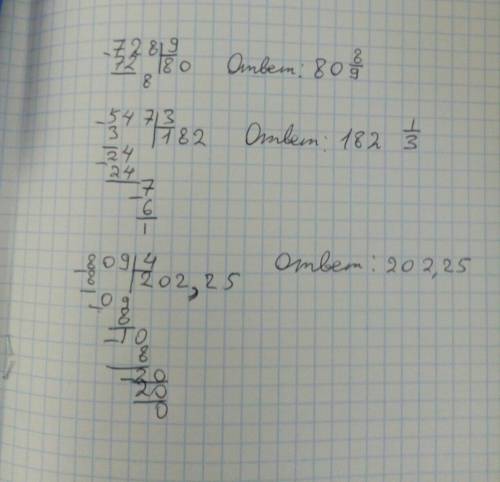 -728|9
72 |80 Ответ: 80 8/9
8
-547|3
3 |182 Ответ: 182 1/3
-24
24
-7
6
1
-809|4 Ответ: 202,25
8 |202,25
-09
8
-10
8
-20
20
0